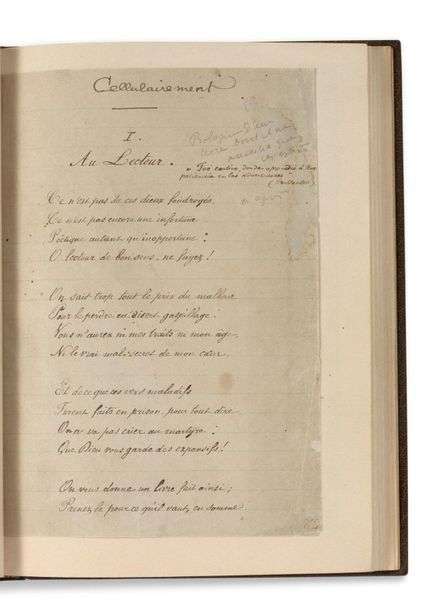 Cellulairement
I.
Au Lecteur.
Ce n'est pas de ces dieux foudroyés,
Ce n'est pas encore une infortune
Poétique autant qu'inopportune :
O lecteur de bon sens, ne fuyez !
On sait trop tout le prix du malheur
Pour le perdre en disert gaspillage.
Vous n'aurez ni mes traits ni mon âge,
Ni le vrai mal secret de mon cœur.
Et de ce que ces vers maladifs
Furent faits en prison, pour tout dire,
On ne va pas crier au martyre :
Que Dieu vous garde des expansifs !
On vous donne un livre fait ainsi ;
Prenez le pour ce qu'il vaut, en somme.